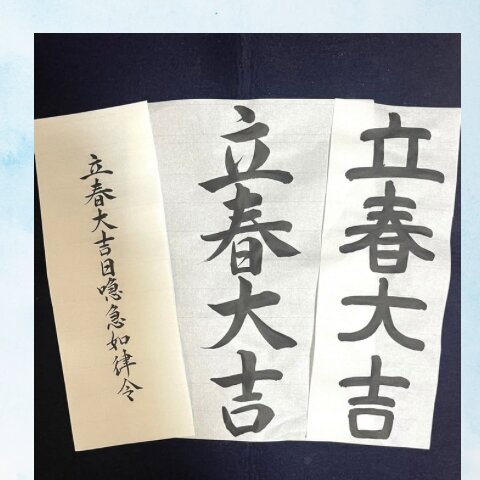 立春大吉
立春大吉
立春大吉日喼急如律令